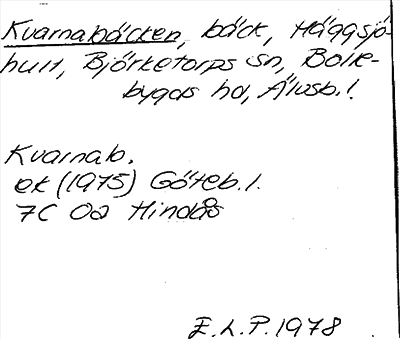 Kvarnabäcken, bäck, Häggsjö-
hult, Björketorps sn, Bolle-
bygds hd, Älvsb. l.
Kvarnab.
ek (1975) Göteb. l.
7C 0a Hindås
E.L.P. 1978